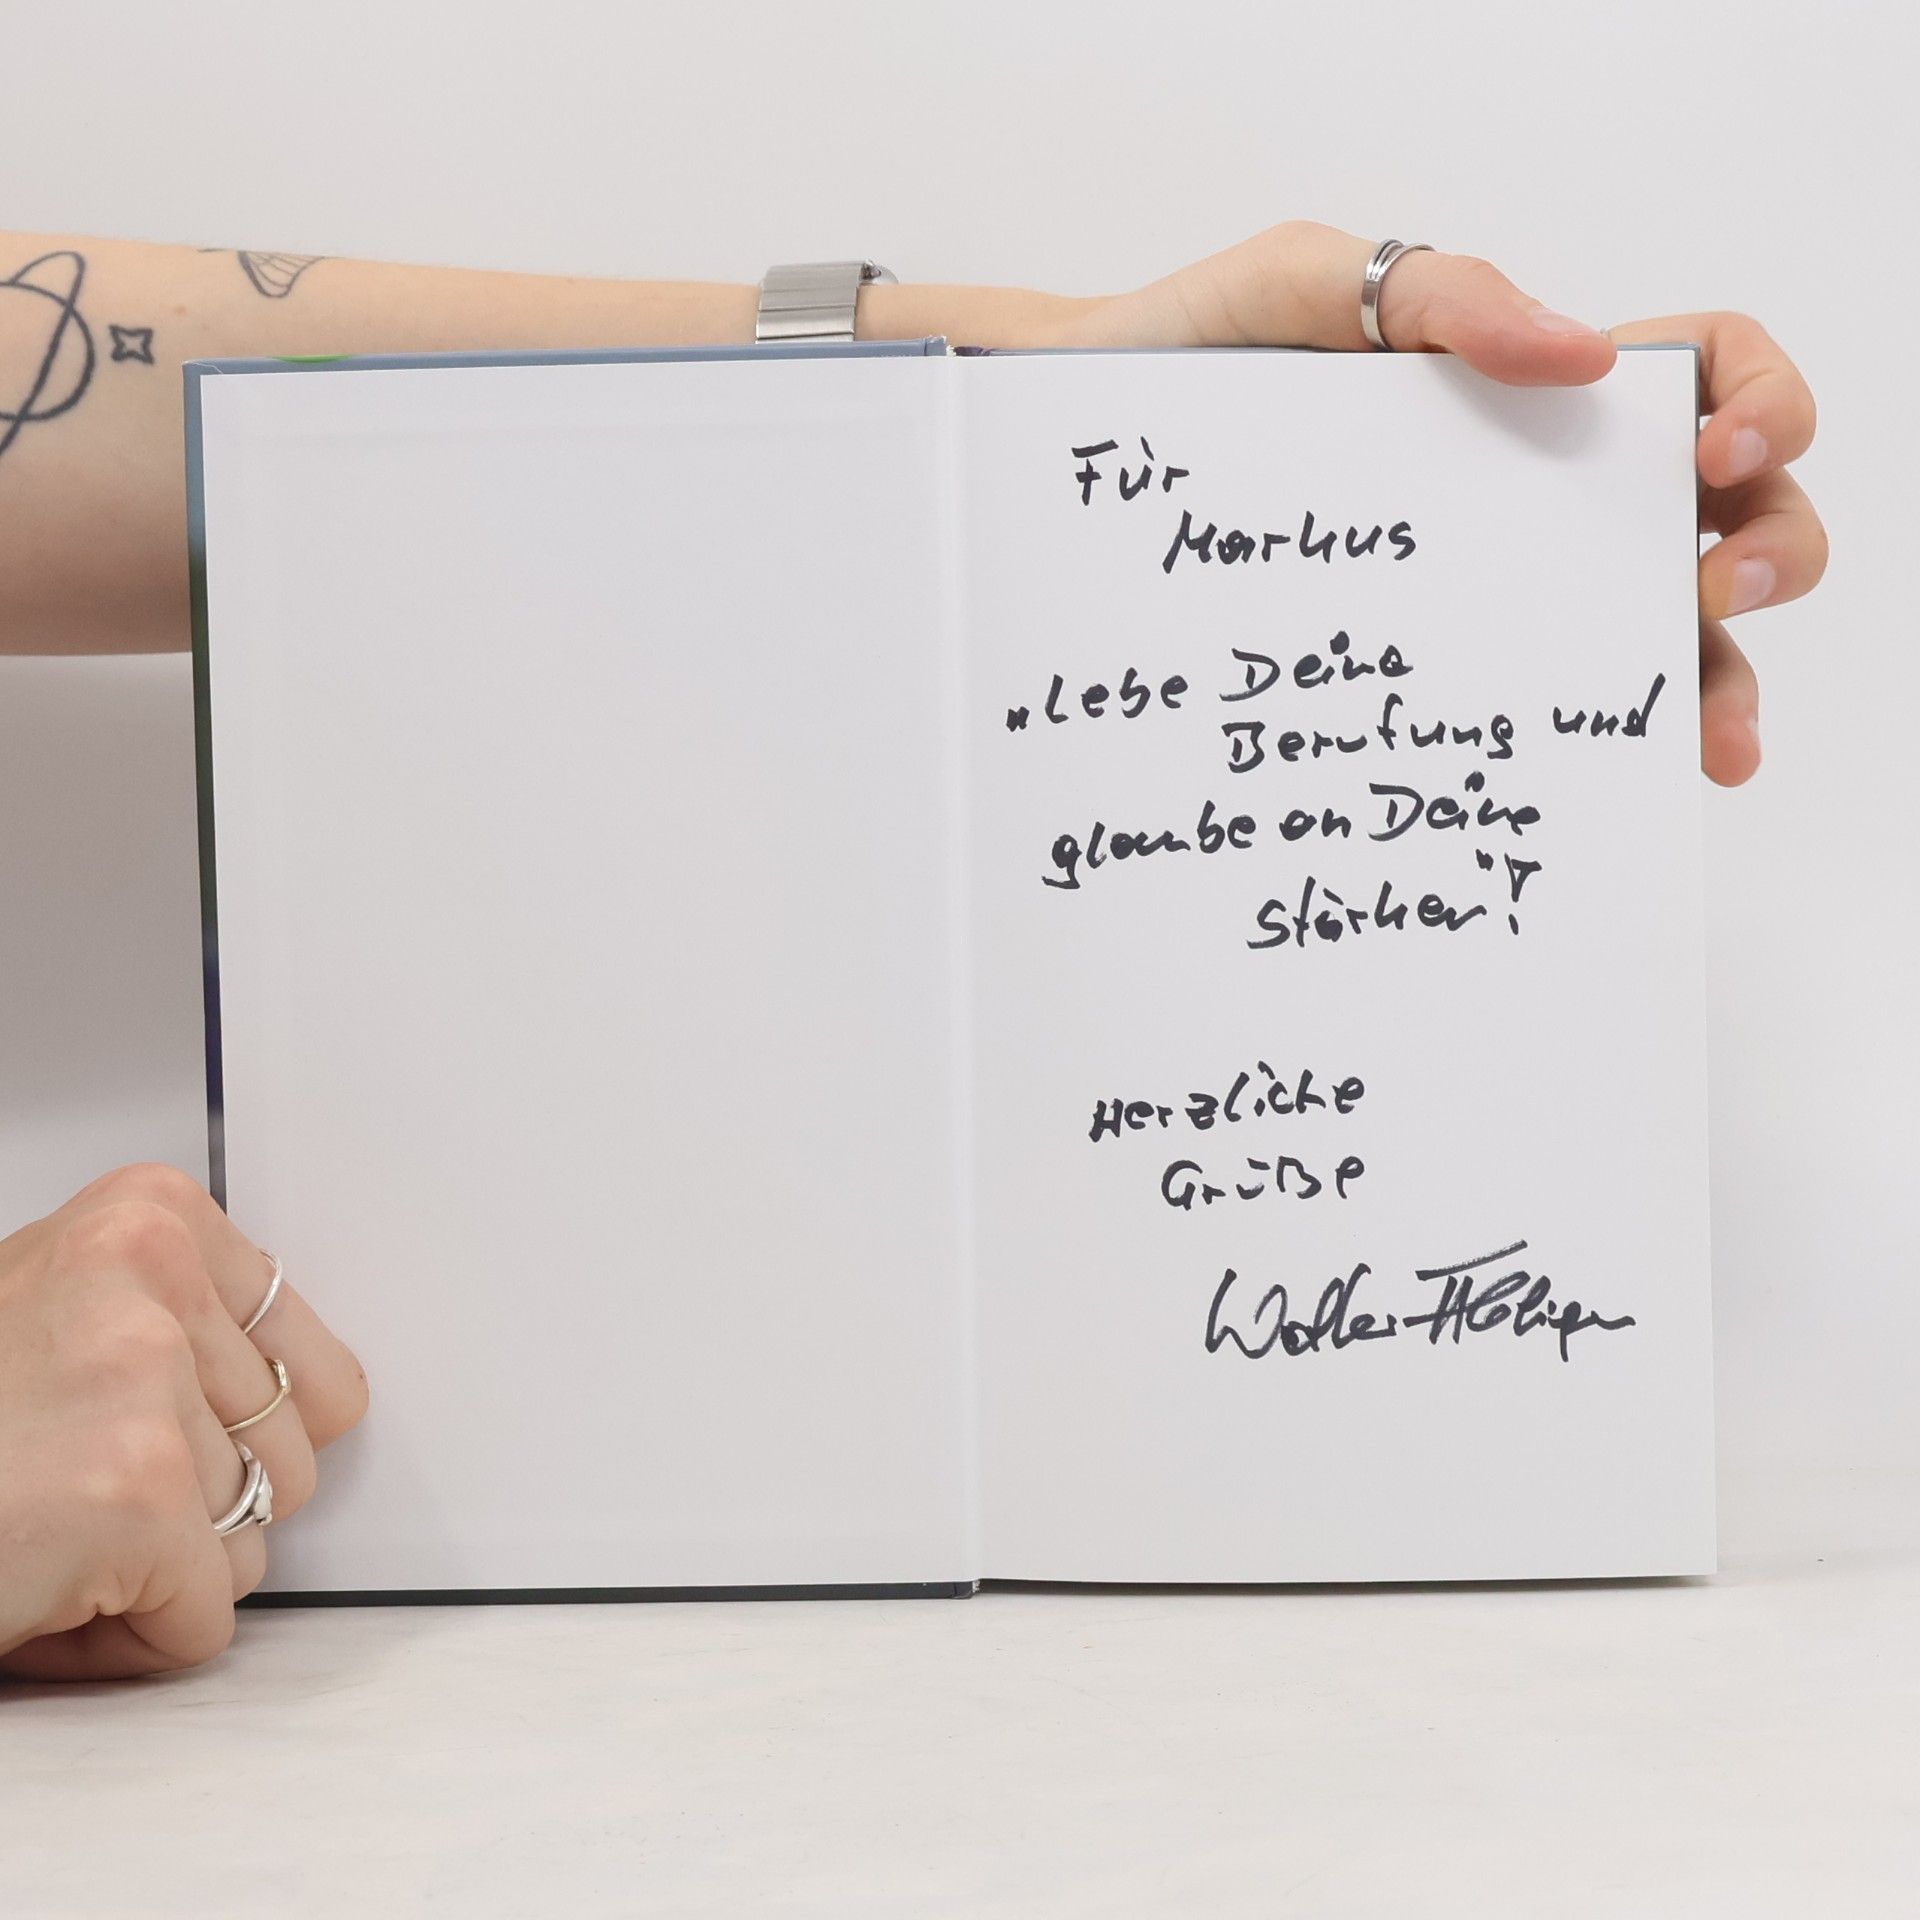 Für
Markus
„Lebe Deine
Berufung und
glaube an Deine
Stärken"!
Herzliche
Grüße
Walter